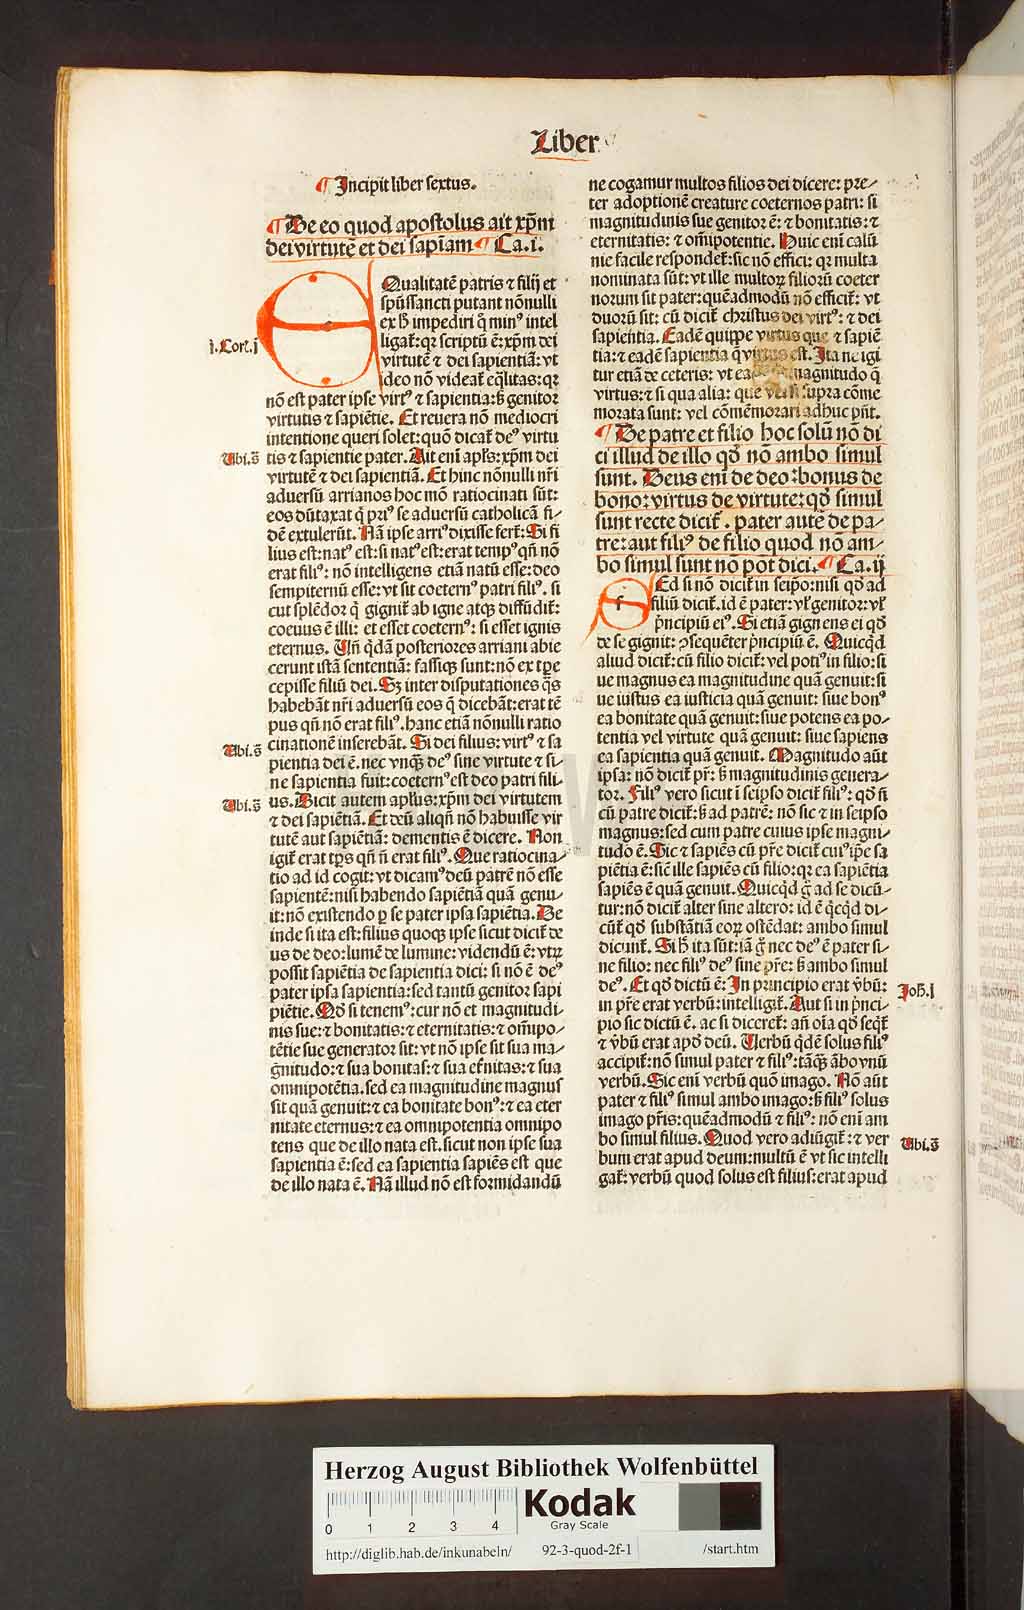 Liber
¶ Incipit liber sextus.
¶ De eo quod apostolus ait xp̄m
dei virtutē et dei sapiam ¶ Ca. i.
EQualitatē patris ⁊ filij et
spūssancti putant nōnulli
ex h̄ impediri q̄ minꝰ intel
ligat̄: qꝛ scriptū ē: xp̄m dei
virtutē ⁊ dei sapientiā: vt
ideo nō videat̄ eq̄litas: qꝛ
nō est pater ipse virtꝰ ⁊ sapientia: s̄ genitor
virtutis ⁊ sapiētie. Et reuera nō mediocri
intentione queri solet: quō dicat̄ deꝰ virtu
tis ⁊ sapientie pater. Ait eni apl̄s: xp̄m dei
virtutē ⁊ dei sapientiā. Et hinc nōnulli nr̄i
aduersū arrianos hoc mō ratiocinati sūt:
eos dūtaxat q̄ priꝰ se aduersū catholicā fi-
dē extulerūt. Nā ipse arriꝰ dixisse fert̄: Si fi
lius est: natꝰ est: si natꝰ est: erat tempꝰ qn̄ nō
erat filiꝰ: nō intelligens etiā natū esse: deo
sempiternū esse: vt sit coeternꝰ patri filiꝰ. si
cut splēdor q̄ gignit̄ ab igne atqꝫ diffūdit̄:
coeuus ē illi: et esset coeternꝰ: si esset ignis
eternus. Un̄ q̄dā posteriores arriani abie
cerunt istā sententiā: fassiqꝫ sunt: nō ex tpe
cepisse filiū dei. Sꝫ inter disputationes q̄s
habebāt nr̄i aduersū eos q̄ dicebāt: erat tē
pus qn̄ nō erat filiꝰ. hanc etiā nōnulli ratio
cinationē inserebāt. Si dei filius: virtꝰ ⁊ sa
pientia dei ē. nec vnqꝫ̄ deꝰ sine virtute ⁊ si-
ne sapientia fuit: coeternꝰ est deo patri fili-
us. Dicit autem apl̄us: xp̄m dei virtutem
⁊ dei sapiētiā. Et deū aliqn̄ nō habuisse vir
tutē aut sapiētiā: dementis ē dicere. Non
igit̄ erat tp̄s qn̄ n̄ erat filiꝰ. Que ratiocina-
tio ad id cogit: vt dicamꝰ deū patrē nō esse
sapientē: nisi habendo sapiētiā quā genu-
it: nō existendo ꝑ se pater ipsa sapiētia. De
inde si ita est: filius quoqꝫ ipse sicut dicit̄ de
us de deo: lumē de lumine: videndū ē: vtꝝ
possit sapiētia de sapientia dici: si nō ē deꝰ
pater ipsa sapientia: sed tantū genitor sapi
piētie. Qd̄ si tenemꝰ: cur nō et magnitudi-
nis sue: ⁊ bonitatis: ⁊ eternitatis: ⁊ om̄ipo-
tētie sue generator sit: vt nō ipse sit sua ma-
gnitudo: ⁊ sua bonitas: ⁊ sua et̄nitas: ⁊ sua
omnipotētia. sed ea magnitudine magnus
sit quā genuit: ⁊ ea bonitate bonꝰ: ⁊ ea eter
nitate eternus: ⁊ ea omnipotentia omnipo
tens que de illo nata est. sicut non ipse sua
sapientia ē: sed ea sapientia sapiēs est que
de illo nata ē. Nā illud nō est formidandū
j. Cort. j
Ubi. s̄
Ubi. s̄
Ubi. s̄
ne cogamur multos filios dei dicere: pre-
ter adoptionē creature coeternos patri: si
magnitudinis sue genitor ē: ⁊ bonitatis: ⁊
eternitatis: ⁊ om̄ipotentie. Huic eni calū
nie facile respondet̄: sic nō effici: qꝛ multa
nominata sūt: vt ille multoꝝ filiorū coeter
norum sit pater: quēadmodū nō efficit̄: vt
duorū sit: cū dicit̄ christus dei virtꝰ: ⁊ dei
sapientia. Eadē quippe virtus que ⁊ sapiē
tia: ⁊ eadē sapientia q̄ virtus est. Ita ne igi
tur etiā de ceteris: vt ea magnitudo q̄
virtus: ⁊ si qua alia: que supra cōme
morata sunt: vel cōmēmorari adhuc pn̄t.
¶ De patre et filio hoc solū nō di
ci illud de illo qd̄ nō ambo simul
sunt. Deus eni de deo: bonus de
bono: virtus de virtute: qd̄ simul
sunt recte dicit̄. pater autē de pa-
tre: aut filiꝰ de filio quod nō am-
bo simul sunt nō pōt dici. ¶ Ca. ij
SEd si nō dicit̄ in seip̄o: nisi qd̄ ad
filiū dicit̄. id ē pater: vl̄ genitor: vl̄
p̄ncipiū eiꝰ. Si etiā gignens ei qd̄
de se gignit: ꝯsequēter p̄ncipiū ē. Quicq̄d
aliud dicit̄: cū filio dicit̄: vel potiꝰ in filio: si
ue magnus ea magnitudine quā genuit: si
ue iustus ea iusticia quā genuit: siue bonꝰ
ea bonitate quā genuit: siue potens ea po-
tentia vel virtute quā genuit: siue sapiens
ea sapientia quā genuit. Magnitudo aūt
ipsa: nō dicit̄ pr̄: s̄ magnitudinis genera-
tor. Filiꝰ vero sicut ī seipso dicit̄ filiꝰ: qd̄ n̄
cū patre dicit̄: s̄ ad patrē: nō sic ⁊ in seipso
magnus: sed cum patre cuius ipse magni-
tudo ē. Sic ⁊ sapiēs cū pr̄e dicit̄ cuiꝰ ip̄e sa
piētia ē: sic̄ ille sapiēs cū filio: qꝛ ea sapiētia
sapiēs ē quā genuit. Quicq̄d g̊ ad se dicū-
tur: nō dicit̄ alter sine altero: id ē q̄cq̄d di-
cūt̄ qd̄ substātiā eoꝝ ostēdat: ambo simul
dicunt̄. Si h̄ ita sūt: iā g̊ nec deꝰ ē pater si-
ne filio: nec filiꝰ deꝰ sine pr̄e: s̄ ambo simul
deꝰ. Et qd̄ dictū ē: In principio erat v̄bū:
in pr̄e erat verbū: intelligit̄. Aut si in p̄nci-
pio sic dictū ē. ac si diceret̄: an̄ oīa qd̄ seqt̄
⁊ v̄bū erat apd̄ deū. Uerbū q̄dē solus filiꝰ
accipit̄: nō simul pater ⁊ filiꝰ: tāqꝫ̄ ābo vnū
verbū. Sic eni verbū quō imago. Nō aūt
pater ⁊ filiꝰ simul ambo imago: s̄ filiꝰ solus
imago pr̄is: quēadmodū ⁊ filiꝰ: nō eni am
bo simul filius. Quod vero adiūgit̄: ⁊ ver
bum erat apud deum: multū ē vt sic intelli
gat̄: verbū quod solus est filius: erat apud
Joh. j
Ubi. s̄
Herzog August Bibliothek Wolfenbüttel
0 1 2 3 4
Kodak
Gray Scale
http://diglib.hab.de/inkunabeln/ 92-3-quod-2f-1 /start.htm